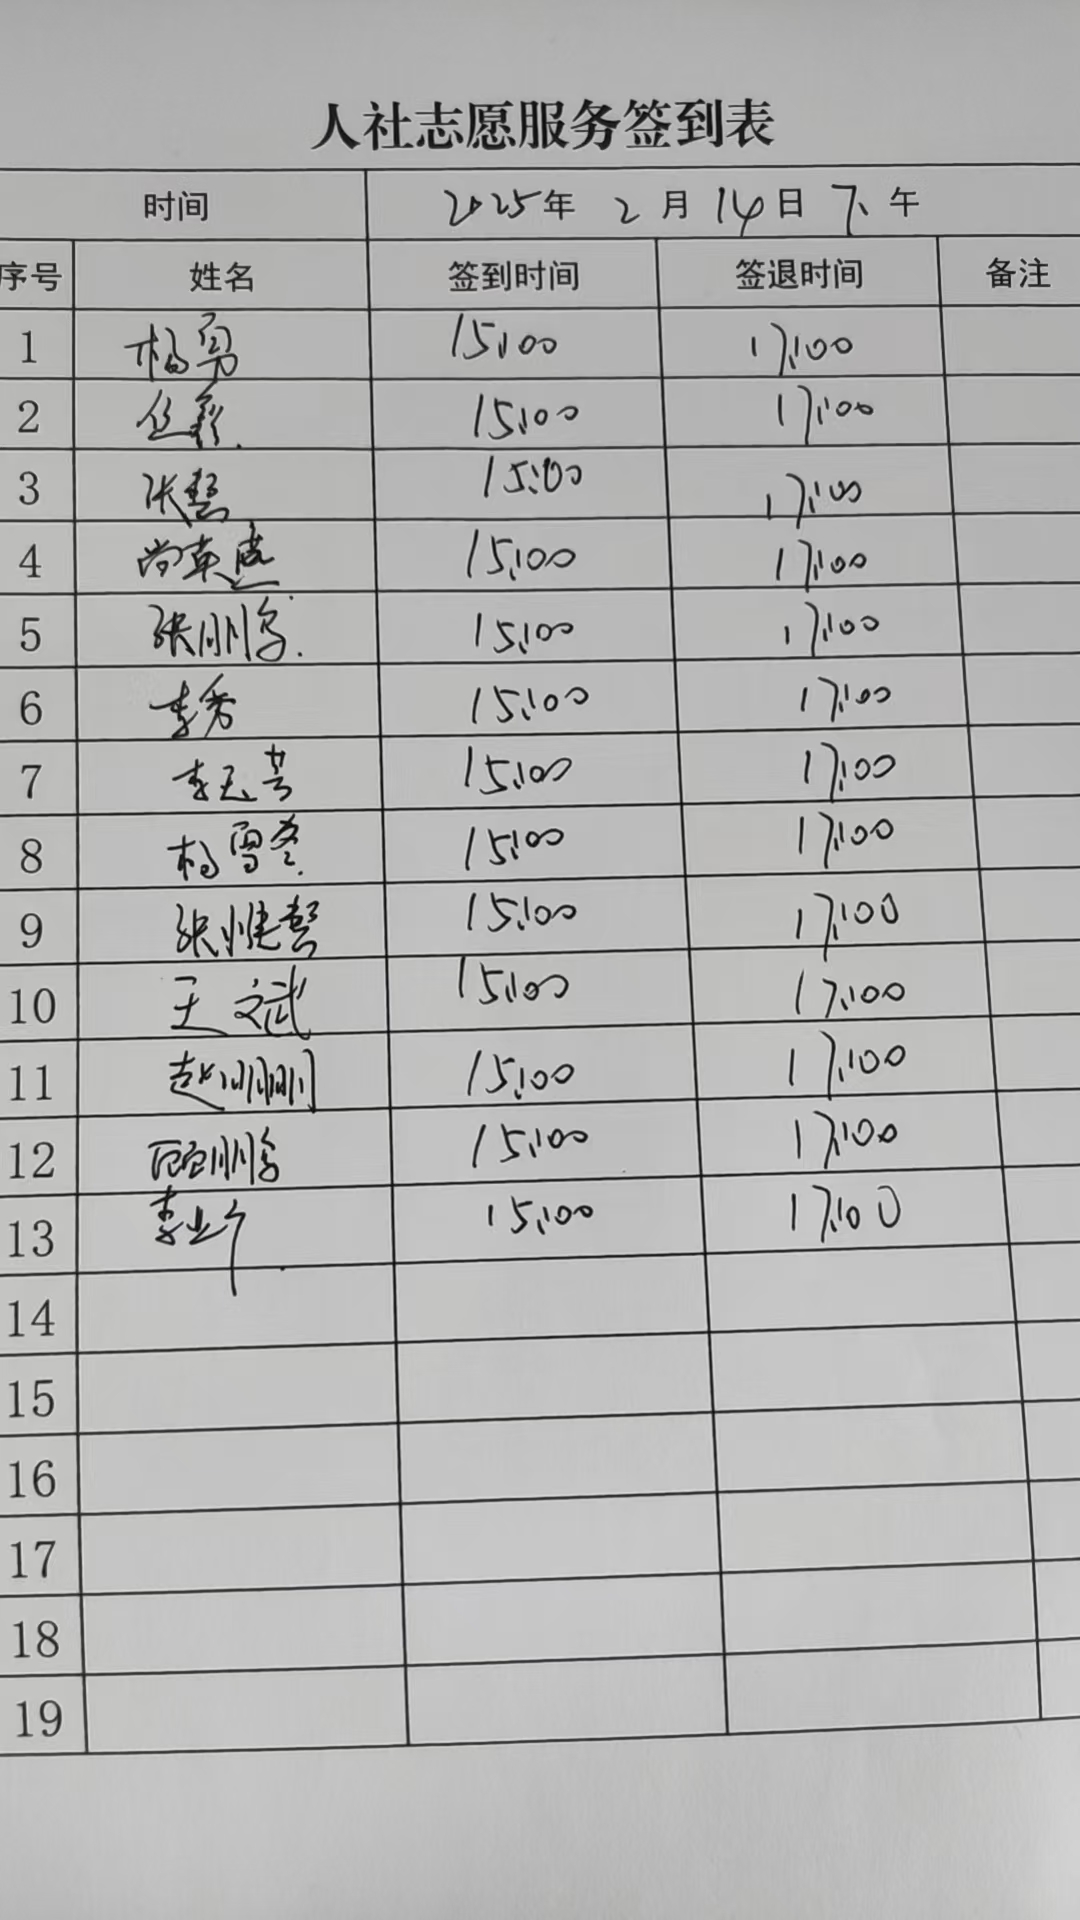 人社志愿服务签到表
时间 2025年 2月14日下午
序号 姓名 签到时间 签退时间 备注
1 杨勇 15:00 17:00
2 15:00 17:00
3 张慧 15:00 17:00
4 尚英 15:00 17:00
5 张刚 15:00 17:00
6 李秀 15:00 17:00
7 李玉芳 15:00 17:00
8 杨雪冬 15:00 17:00
9 张惟哲 15:00 17:00
10 王文斌 15:00 17:00
11 赵刚刚 15:00 17:00
12 顾鹏 15:00 17:00
13 李业 15:00 17:00
14
15
16
17
18
19